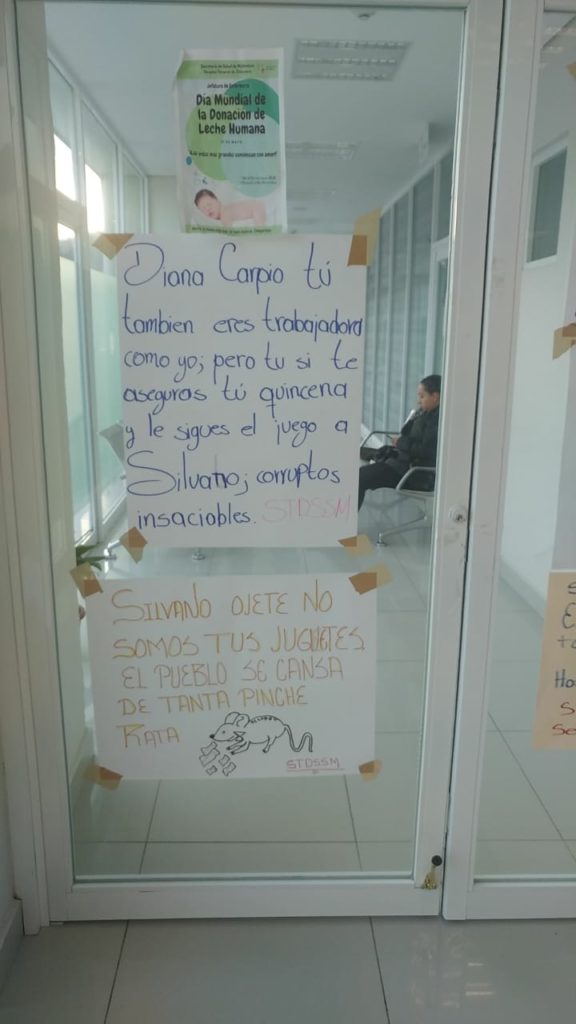 Secretaría de Salud de Michoacán
Jefatura de Enfermería
Día Mundial de
la Donación de
Leche Humana
19 DE MAYO
Diana Carpio tú
tambien eres trabajadora
como yo; pero tu si te
aseguras tú quincena
y le sigues el juego a
Silvano; corruptos
insaciables. STDSSM
SILVANO OJETE NO
SOMOS TUS JUGUETES.
EL PUEBLO SE CANSA
DE TANTA PINCHE
RATA
STDSSM